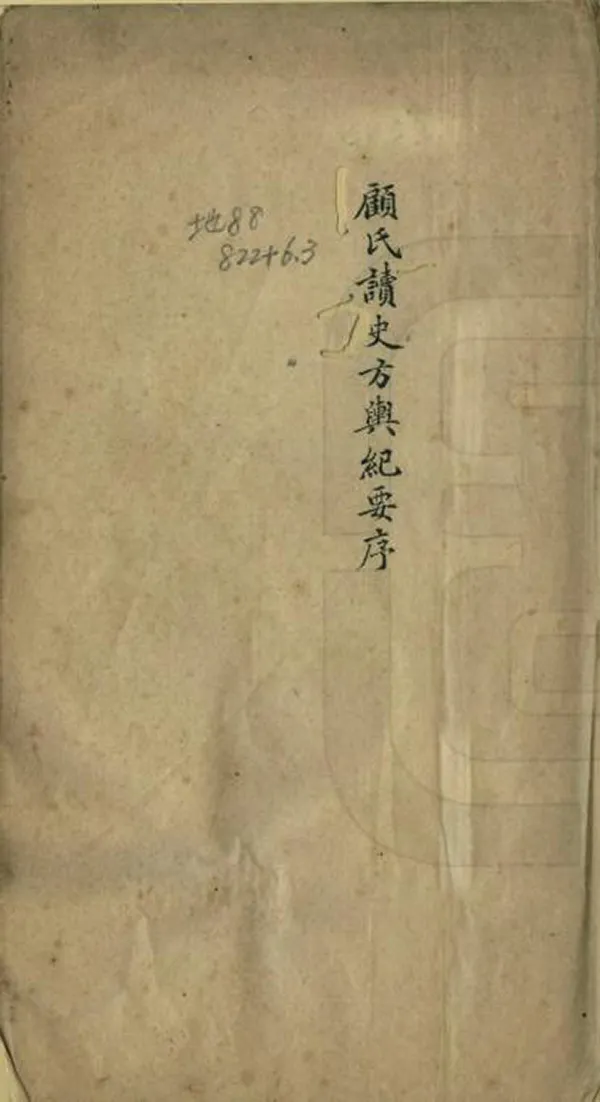 顧氏讀史方輿紀要序
地88
822+6.3